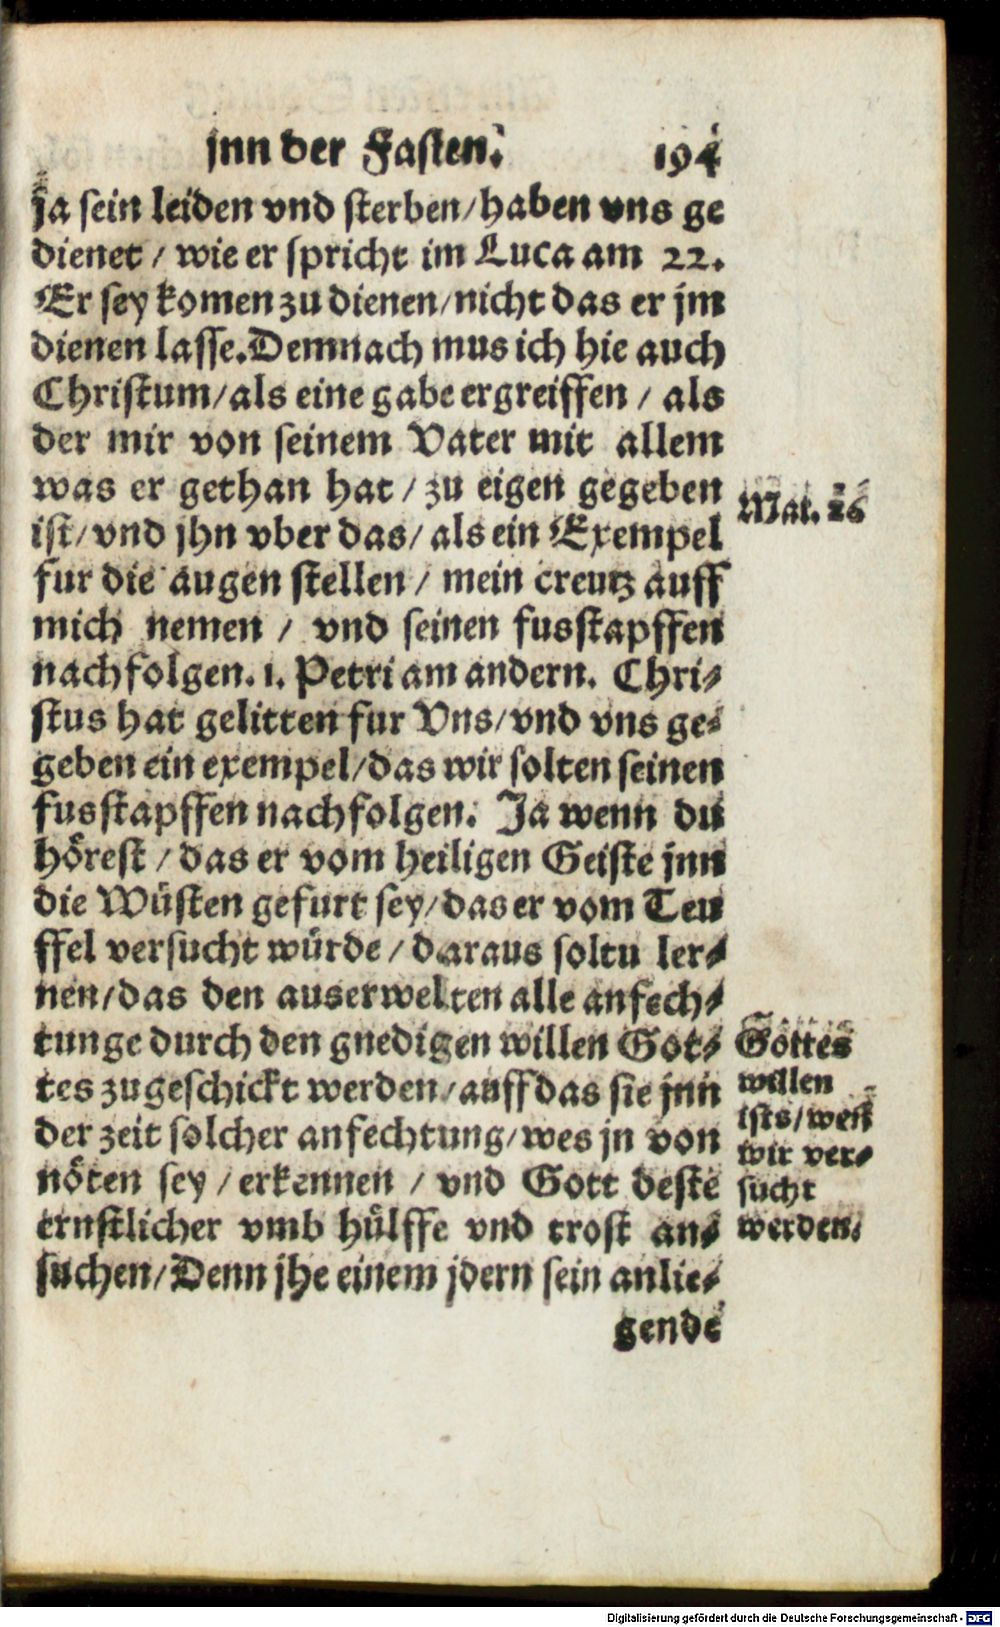 jnn der Fasten. 194
ja sein leiden vnd sterben/haben vns ge
dienet / wie er spricht im Luca am 22.
Er sey komen zu dienen/nicht das er jm
dienen lasse. Demnach mus ich hie auch
Christum/als eine gabe ergreiffen / als
der mir von seinem Vater mit allem
was er gethan hat / zu eigen gegeben
ist/vnd jhn vber das/als ein Exempel
fur die augen stellen / mein creutz auff
mich nemen / vnd seinen fusstapffen
nachfolgen. 1. Petri am andern. Chri-
stus hat gelitten fur Vns/vnd vns ge-
geben ein exempel/das wir solten seinen
fusstapffen nachfolgen. Ja wenn du
hörest / das er vom heiligen Geiste jnn
die Wüsten gefurt sey/das er vom Teu
ffel versucht würde / daraus soltu ler-
nen/das den auserwelten alle anfech-
tunge durch den gnedigen willen Got-
tes zugeschickt werden/auff das sie jnn
der zeit solcher anfechtung/wes jn von
nöten sey / erkennen / vnd Gott deste
ernstlicher vmb hülffe vnd trost an-
suchen/Denn jhe einem jdern sein anlie-
gende
Mat. 26
Gottes
willen
ists/wen
wir ver-
sucht
werden.
Digitalisierung gefördert durch die Deutsche Forschungsgemeinschaft - DFG